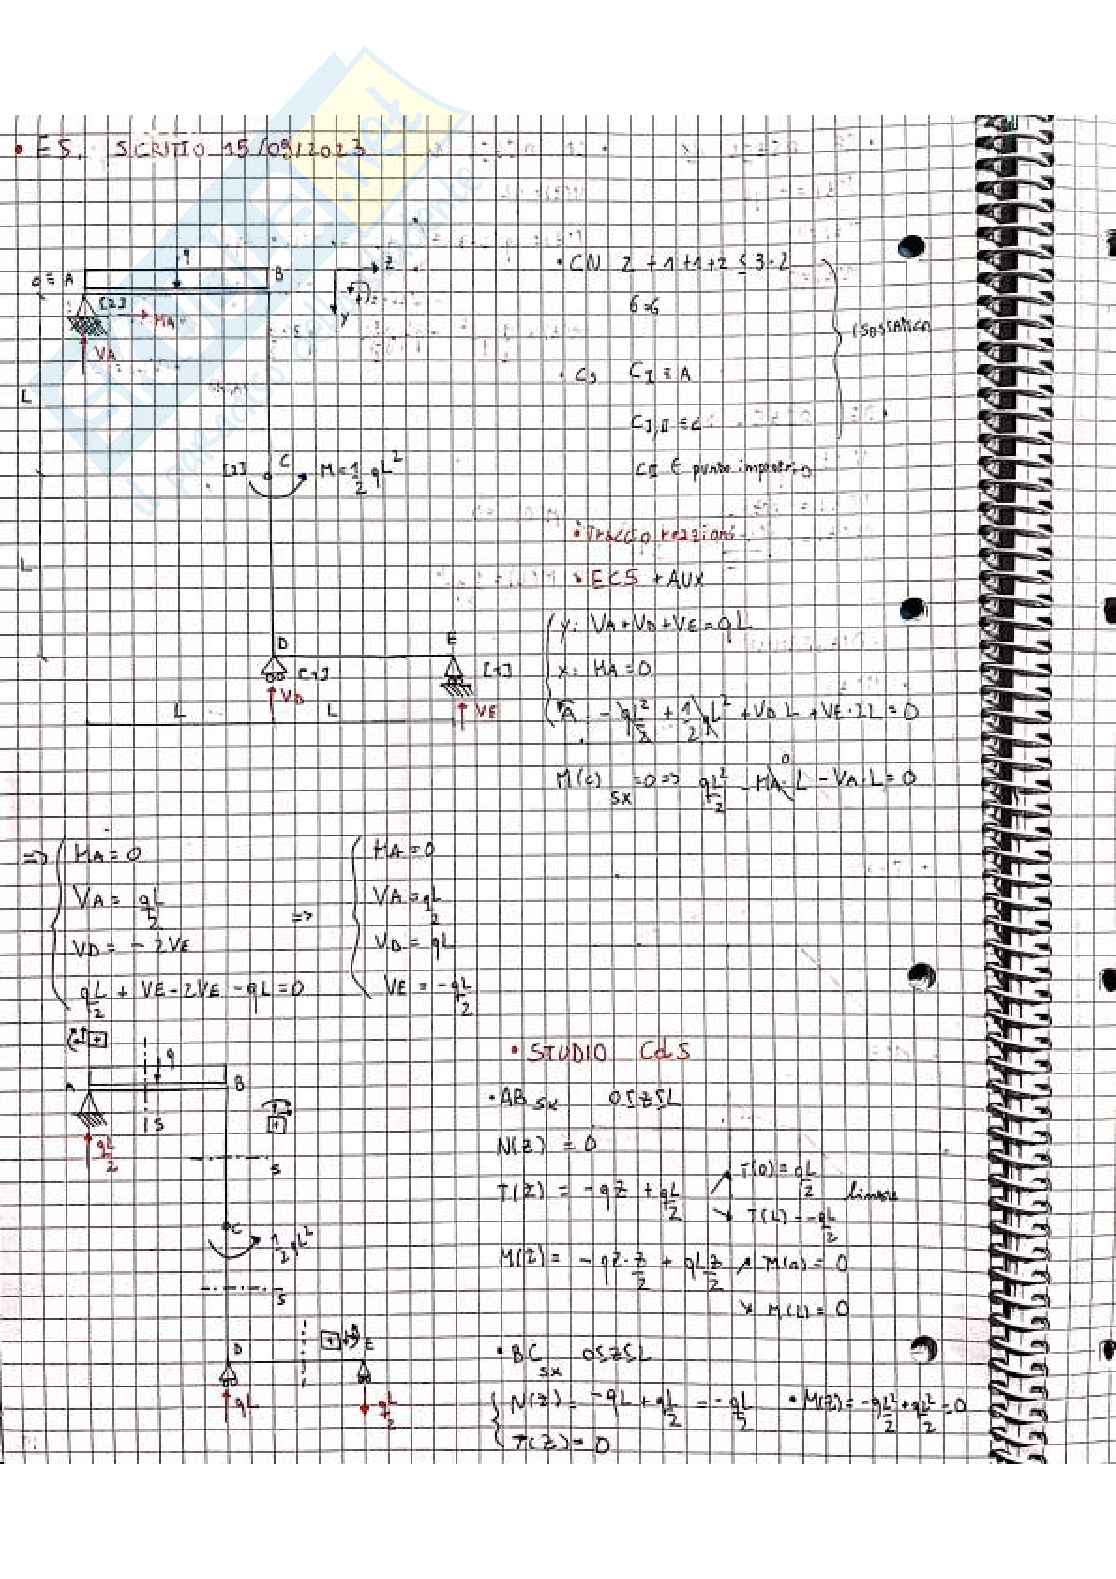 • ES. SCRITTO 15/09/2023
q
0 ≡ A
B
z
y
[2]
HA
VA
L
[2] C M = 1/2 qL²
L
D
E
[1]
[1]
VD
VE
L
L
• CN 2 + 1 + 1 + 2 ≤ 3·2
6=6
ISOSTATICA
• CS CI ≡ A
CI,II ≡ C
CII È punto improprio
• Traccio reazioni
• ECS + AUX
y: VA + VD + VE = qL
x: HA = 0
A: - qL²/2 + 1/2 qL² + VD L + VE·2L = 0
M(C) sx = 0 => qL²/2 - HA·L - VA·L = 0
0
=> HA = 0
VA = qL/2
VD = - 2VE
qL/2 + VE - 2VE - qL = 0
=> HA = 0
VA = qL/2
VD = qL
VE = - qL/2
q
A
B
S
qL/2
S
C
1/2 qL²
S
D
E
qL
qL/2
• STUDIO CdS
• AB sx 0≤z≤L
N(z) = 0
T(z) = - qz + qL/2
T(0) = qL/2
T(L) = - qL/2
lineare
M(z) = - qz·z/2 + qL z/2
M(0) = 0
M(L) = 0
• BC sx 0≤z≤L
N(z) = - qL + qL/2 = - qL/2
T(z) = 0
• M(z) = - qL²/2 + qL²/2 = 0